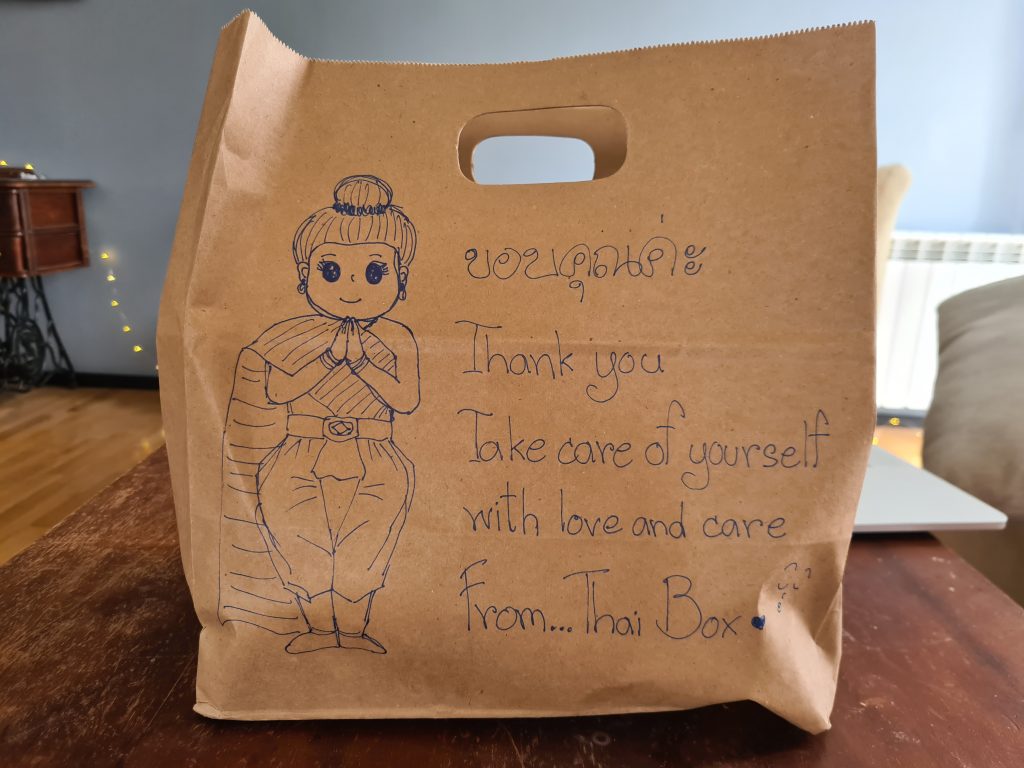 ขอบคุณค่ะ
Thank you
Take care of yourself
with love and care
From... Thai Box